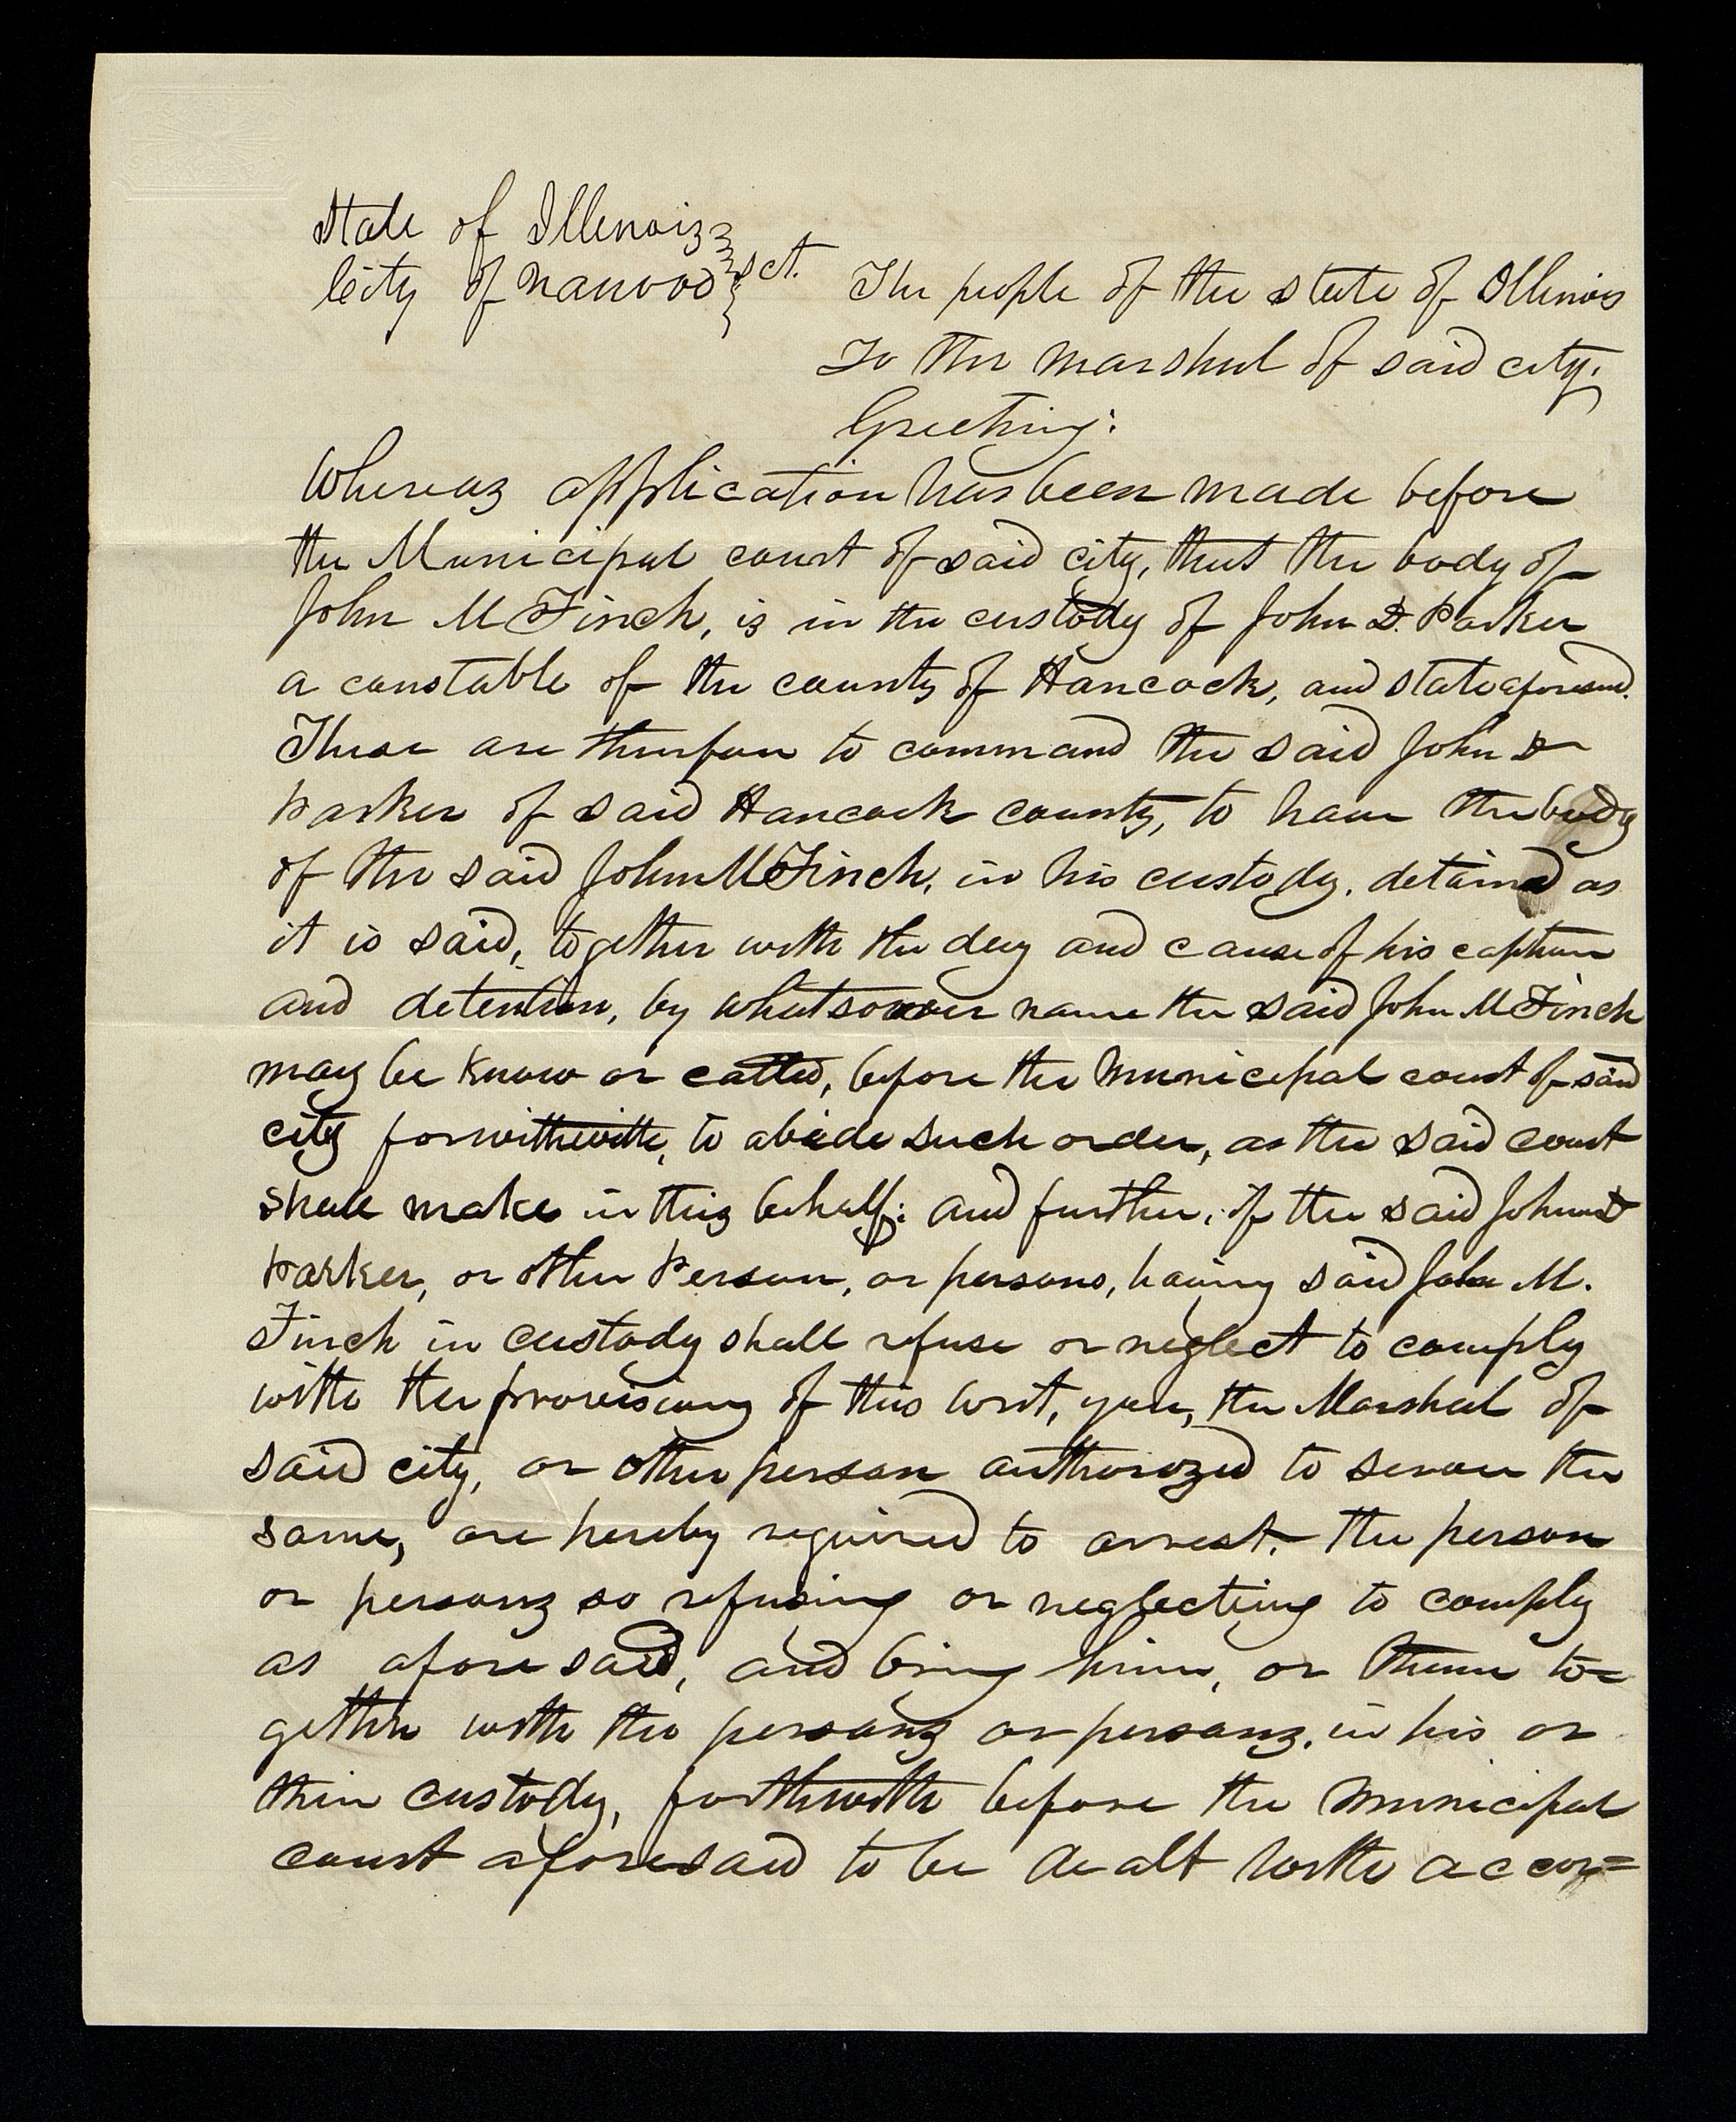 State of Illinois
City of Nauvoo } sct.
The people of the state of Illinois
To the marshal of said city.
Greeting:
Whereas application has been made before
the Municipal court of said city, that the body of
John M Finch, is in the custody of John D. Parker
a constable of the county of Hancock, and state aforesaid.
These are therefore to command the said John D
Parker of said Hancock county, to have the body
of the said John M Finch, in his custody, detained as
it is said, together with the day and cause of his caption
and detention, by whatsoever name the said John M Finch
may be know or called, before the Municipal court of said
city forwithwith, to abide such order, as the said court
shall make in this behalf: and further, if the said John D
Parker, or other Person, or persons, having said John M.
Finch in custody shall refuse or neglect to comply
with the provisions of this writ, you, the Marshal of
said city, or other person authorized to serve the
same, are hereby required to arrest. the person
or persons so refusing or neglecting to comply
as aforesaid, and bring him, or them to=
gether with the persons or persons, in his or
their custody, forthwith before the Municipal
court aforesaid to be dealt with accor=